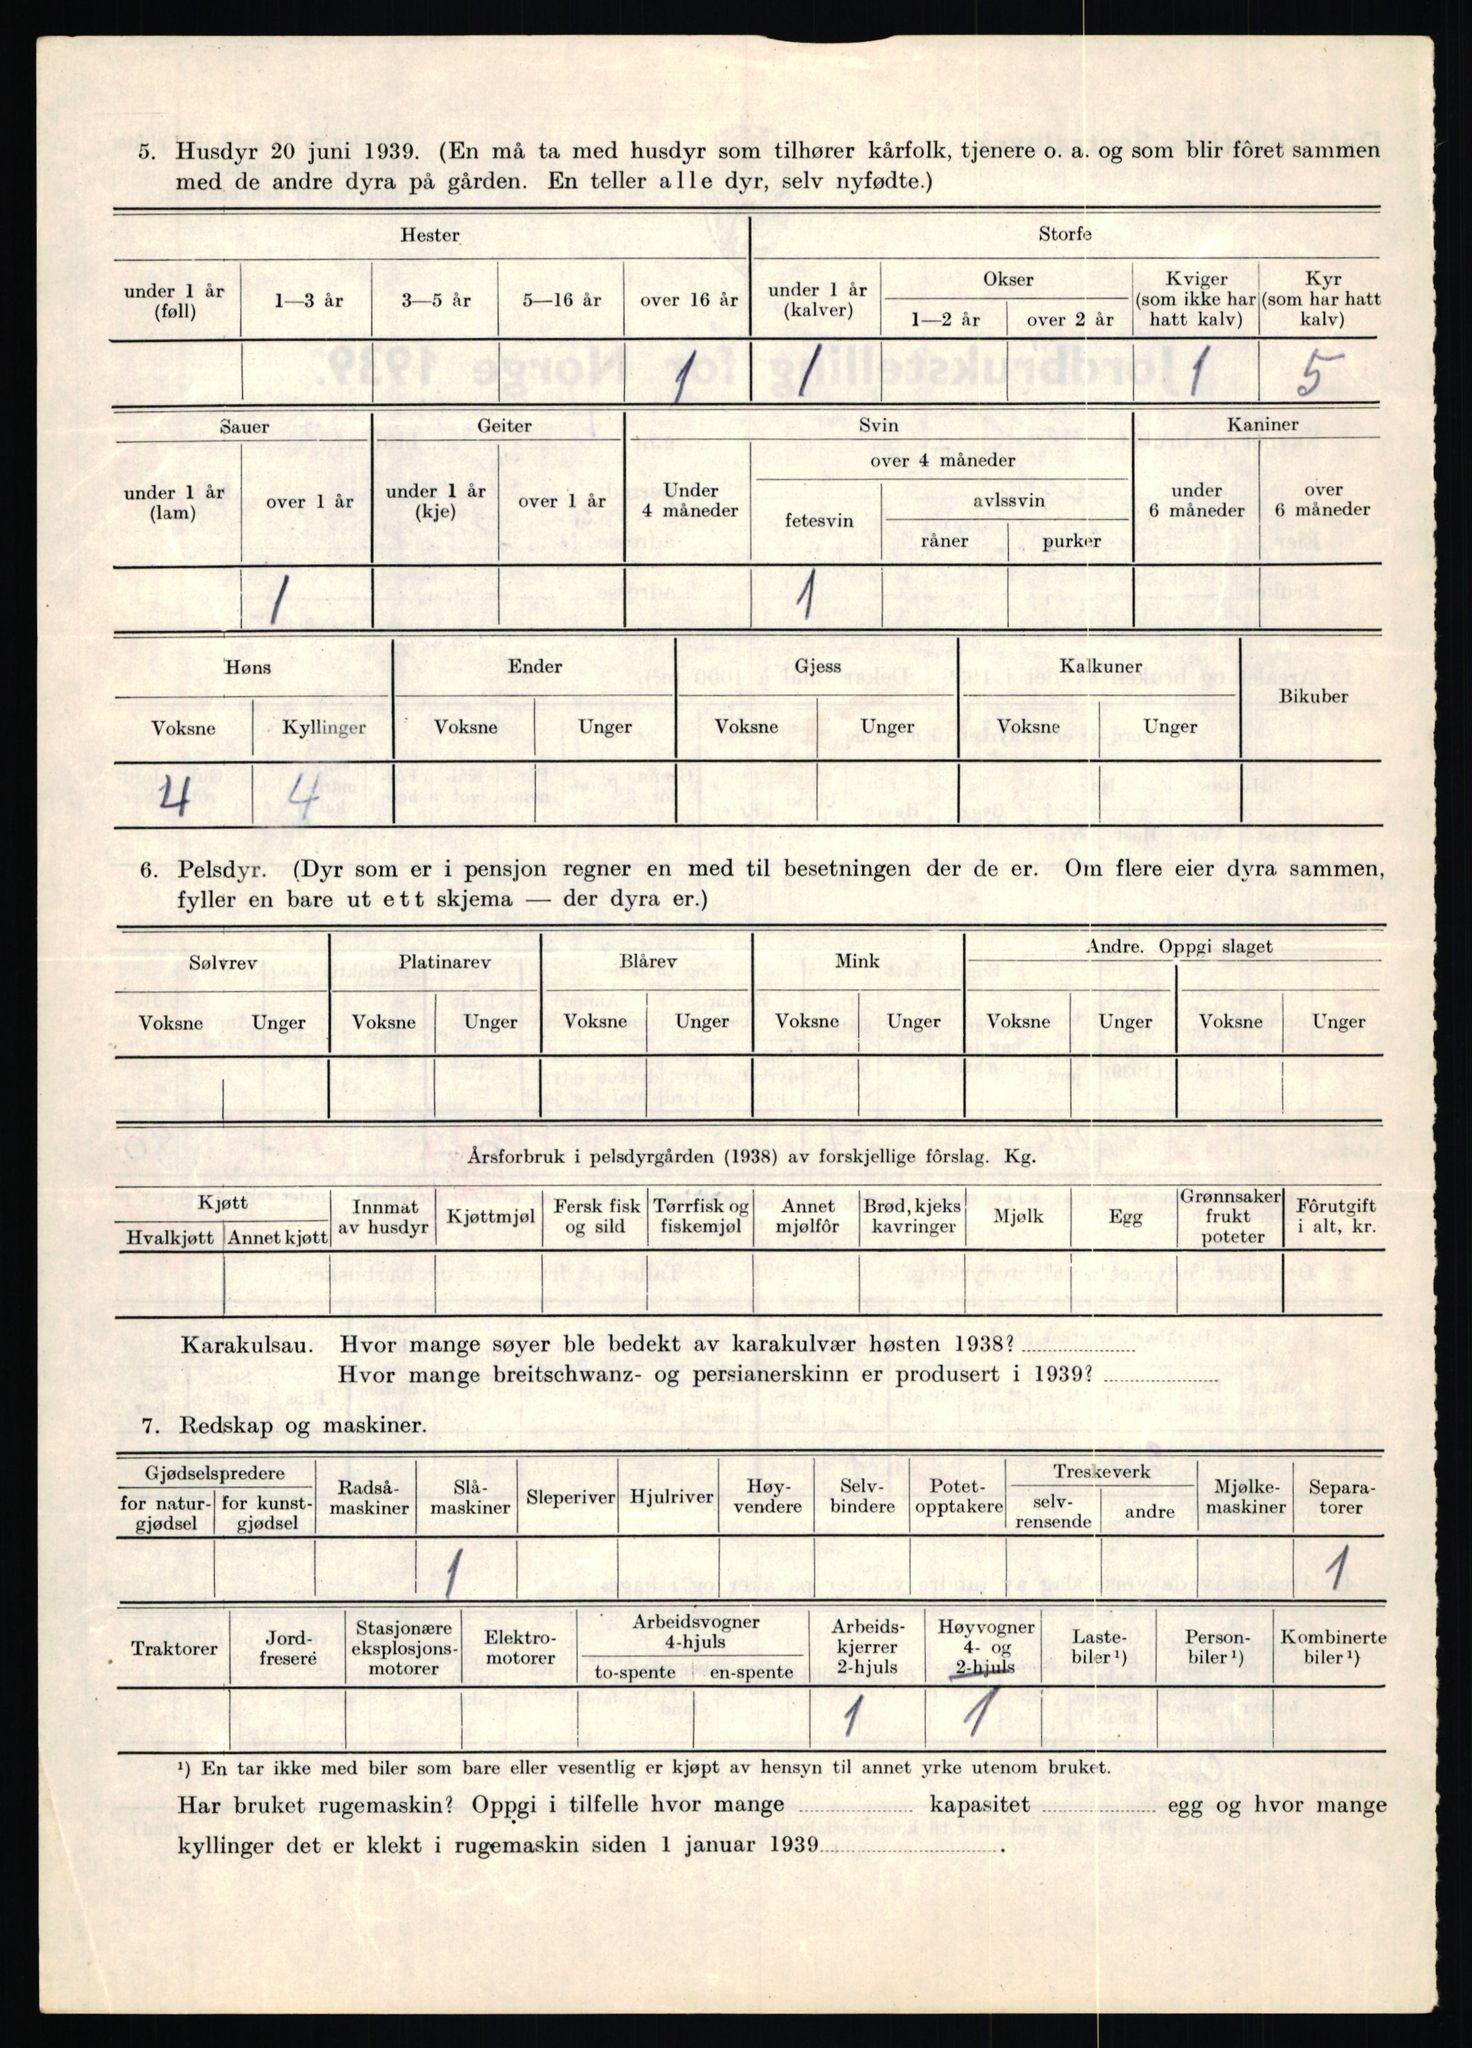 5. Husdyr 20 juni 1939. (En må ta med husdyr som tilhører kårfolk, tjenere o. a. og som blir fôret sammen
med de andre dyra på gården. En teller alle dyr, selv nyfødte.)
Hester Storfe
under 1 år (føll) 1—3 år 3—5 år 5—16 år over 16 år under 1 år (kalver) Okser 1—2 år over 2 år Kviger (som ikke har hatt kalv) Kyr (som har hatt kalv)
1 1 1 5
Sauer Geiter Svin Kaniner
under 1 år (lam) over 1 år under 1 år (kje) over 1 år Under 4 måneder over 4 måneder fetesvin avlssvin råner purker under 6 måneder over 6 måneder
1 1
Høns Ender Gjess Kalkuner Bikuber
Voksne Kyllinger Voksne Unger Voksne Unger Voksne Unger
4 4
6. Pelsdyr. (Dyr som er i pensjon regner en med til besetningen der de er. Om flere eier dyra sammen,
fyller en bare ut ett skjema — der dyra er.)
Sølvrev Platinarev Blårev Mink Andre. Oppgi slaget
Voksne Unger Voksne Unger Voksne Unger Voksne Unger Voksne Unger Voksne Unger
Årsforbruk i pelsdyrgården (1938) av forskjellige fôrslag. Kg.
Kjøtt Hvalkjøtt Annet kjøtt Innmat av husdyr Kjøttmjøl Fersk fisk og sild Tørrfisk og fiskemjøl Annet mjølfôr Brød, kjeks kavringer Mjølk Egg Grønnsaker frukt poteter Fôrutgift i alt, kr.
Karakulsau. Hvor mange søyer ble bedekt av karakulvær høsten 1938?
Hvor mange breitschwanz- og persianerskinn er produsert i 1939?
7. Redskap og maskiner.
Gjødselspredere for natur-gjødsel for kunst-gjødsel Radså-maskiner Slå-maskiner Sleperiver Hjulriver Høy-vendere Selv-bindere Potet-opptakere Treskeverk selv-rensende andre Mjølke-maskiner Separa-torer
1 1
Traktorer Jord-fresere Stasjonære eksplosjons-motorer Elektro-motorer Arbeidsvogner 4-hjuls to-spente en-spente Arbeids-kjerrer 2-hjuls Høyvogner 4- og 2-hjuls Laste-biler ¹) Person-biler ¹) Kombinerte biler ¹)
1 1
¹) En tar ikke med biler som bare eller vesentlig er kjøpt av hensyn til annet yrke utenom bruket.
Har bruket rugemaskin? Oppgi i tilfelle hvor mange kapasitet egg og hvor mange
kyllinger det er klekt i rugemaskin siden 1 januar 1939 .